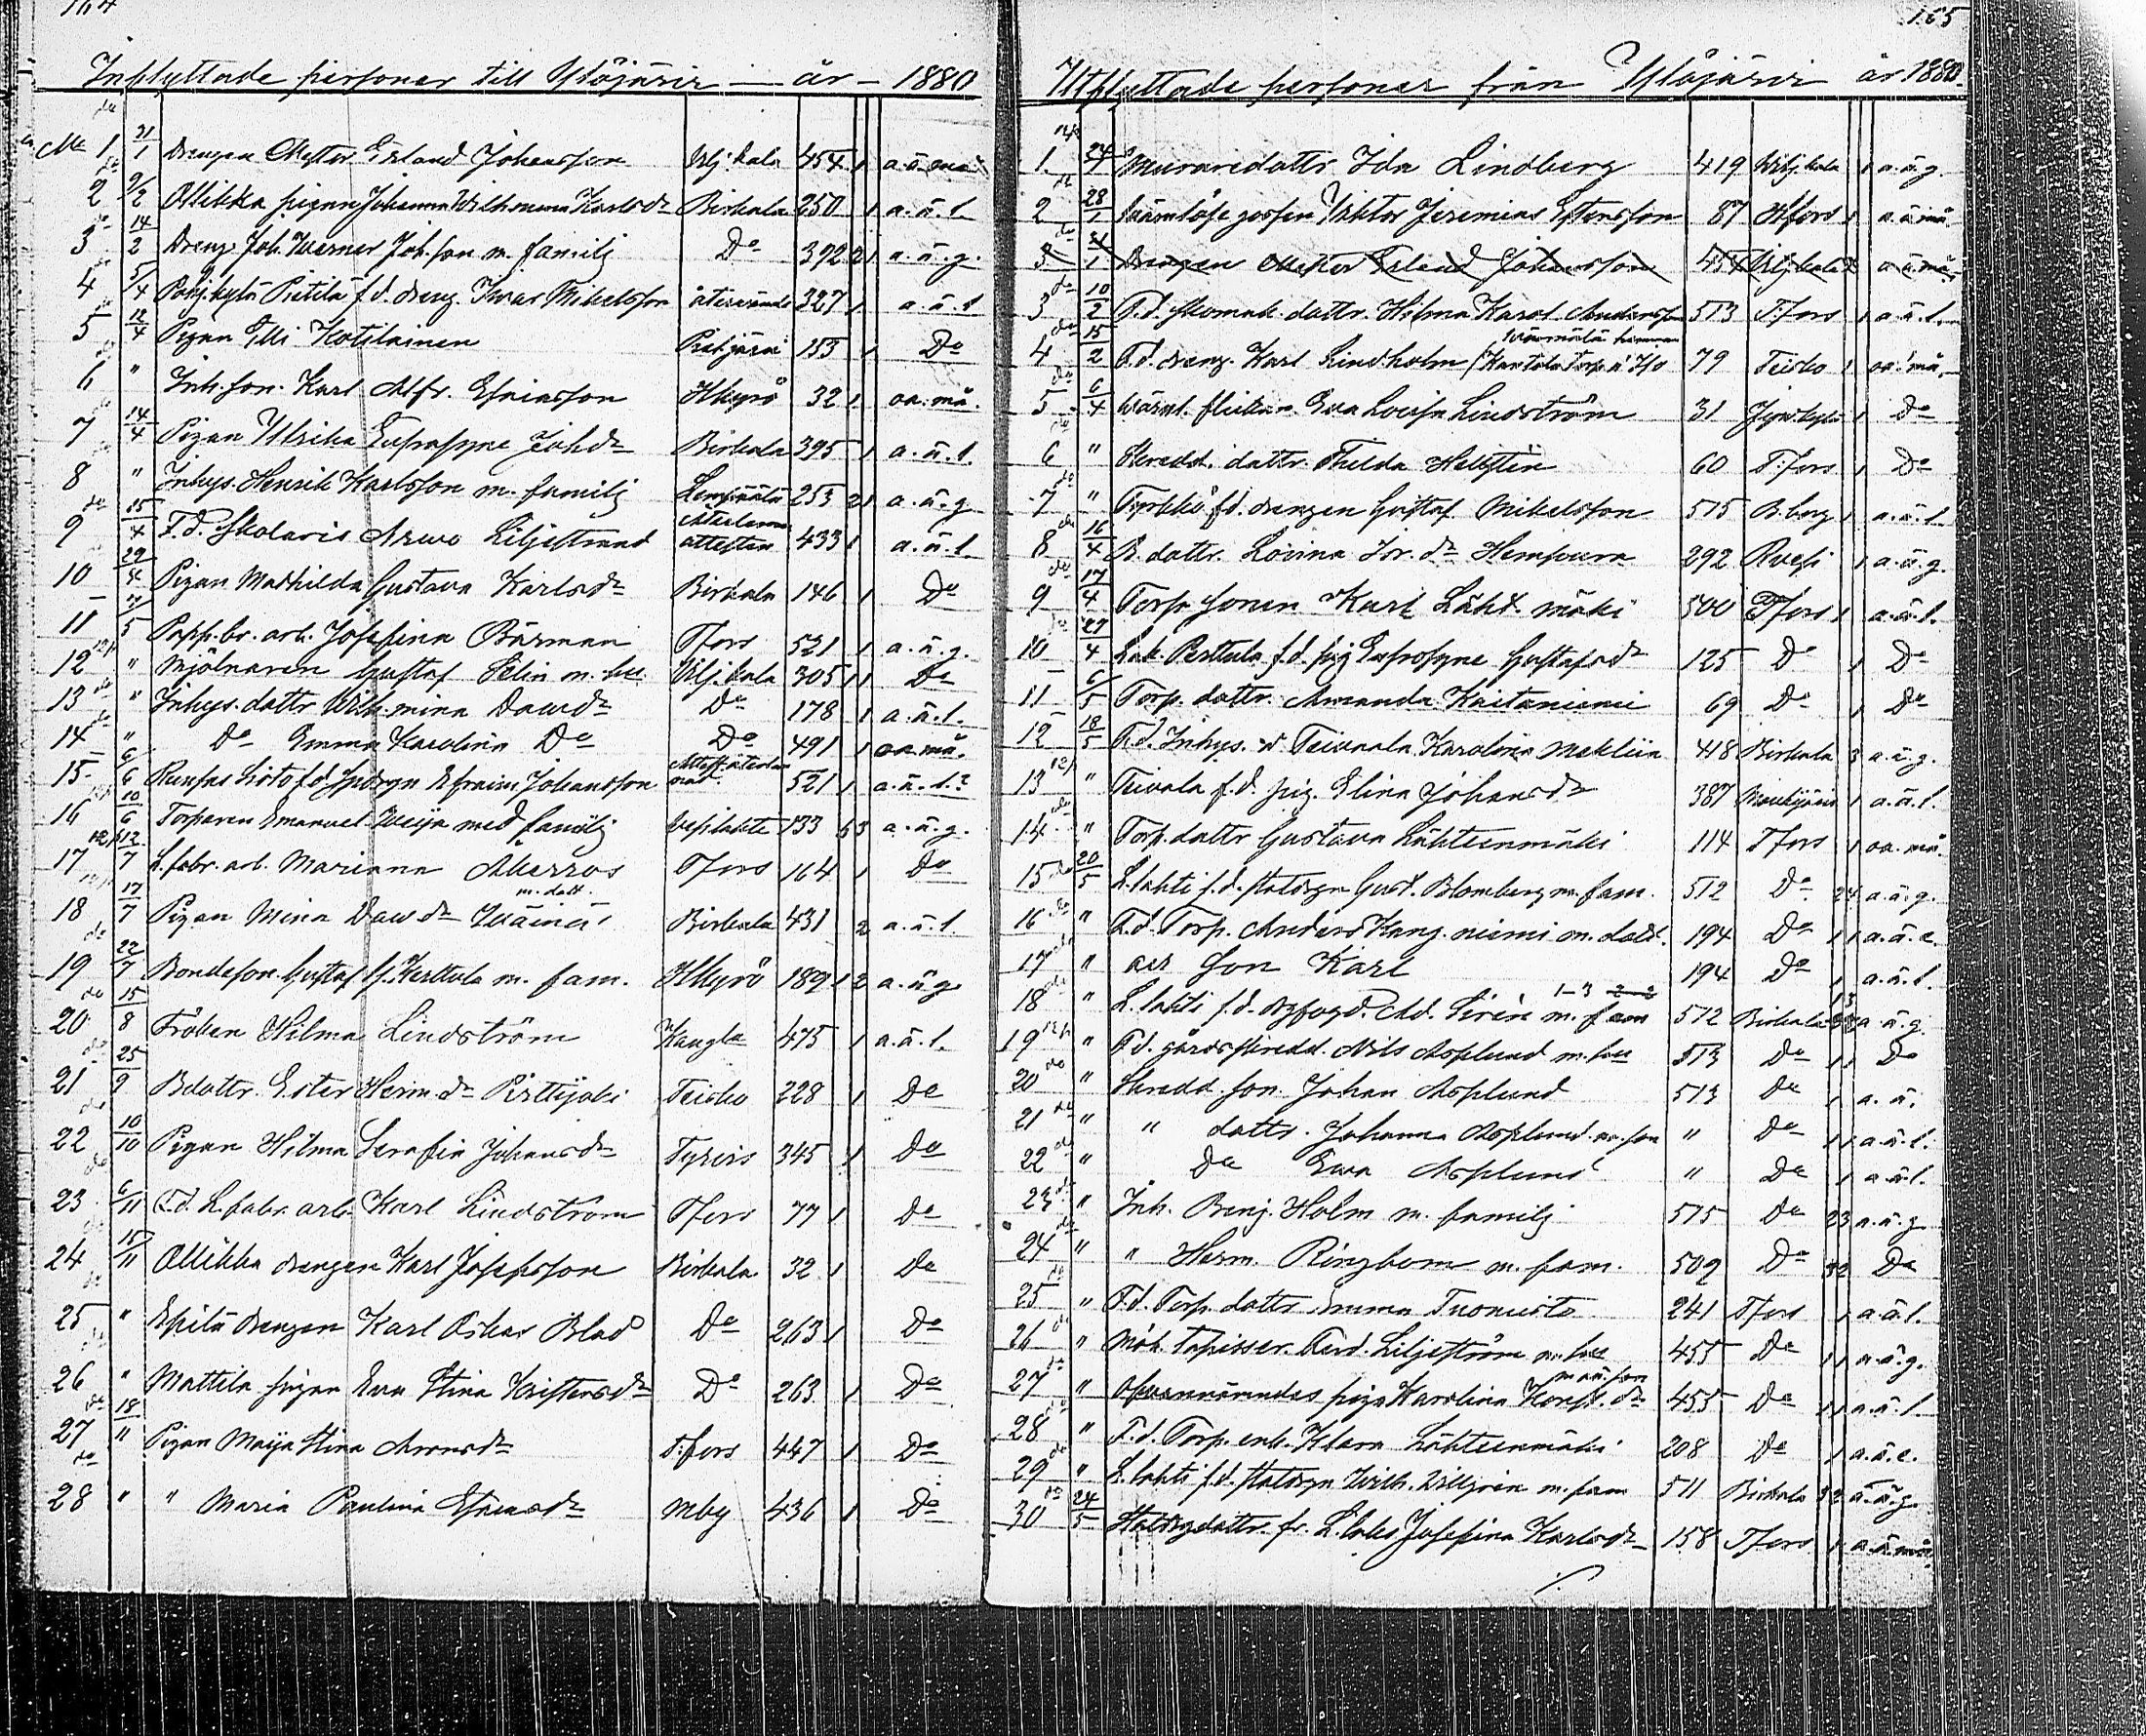 164
Inflyttade personer till Ylöjärvi — år — 1880
No 1 31/1 Drengen Mester Erland Johansson Vilj.kala 454 1 a.ä. må
2 9/2 Mikka pigan Johanna Wilhemina Karlsdr Birkala 250 1 a.ä.l.
3 14/2 Dreng. Joh. Werner Joh.son m. familj Do 392 2 1 a.ä.g.
4 5/4 Pohj.kylä Pietilä f.d. dreng. Ivar Mikelsson återvände 327 1 a.ä.l.
5 12/4 Pigan Ulli Kotilainen 153 1 Do
6 " Inh.son. Karl Alfr. Efraimsson Ikyrö 32 1 oa. må.
7 14/4 Pigan Ulrika Eufrosyne Johdr Birkala 395 1 a.ä.l.
8 " Inhys. Henrik Karlsson m. familj Lempäälä 253 2 1 a.ä.g
9 15/4 F.d. Skolaris Arwo Liljestrand attesten 433 1 a.ä.l.
10 29/4 Pigan Mathilda Gustava Karlsdr Birkala 146 1 Do
11 7/5 Papp.br. arb. Josefina Bärman Tfors 521 1 a.ä.g.
12 " Mjölnaren Gustaf Selin m. hu Vilj.kala 305 1 1 Do
13 " Inhys. dottr Wilh.mina Dawdr Do 178 1 a.ä.l.
14 " Do Emma Karolina Do Do 491 1 oa må.
15 6/6 Efraim Johansson 521 1 a.ä.l.?
16 10/6 Torparen Emanuel Weija med familj Vesilahti 133 5 3 a.ä.g.
17 12/7 L.fabr. arb. Mariana Marros Tfors 164 1 Do
m. dott.
18 17/7 Pigan Mina Dawdr Wäinä Birkala 431 2 a.ä.l.
19 22/7 Bondeson. Gustaf Kerttula m. fam. Ikyrö 189 1 2 a.ä.g.
20 15/8 Fröken Hilma Lindström Kangla 475 1 a.ä.l.
21 25/9 Bdottr. Ester Herm.dr Pirttijoki Teisko 228 1 Do
22 10/10 Pigan Hilma Serafia Johansdr Tyrvis 345 1 Do
23 6/11 F.d. L.fabr. arb. Karl Lindström Tfors 77 1 Do
24 15/11 Mikka drengen Karl Josefsson Birkala 32 1 Do
25 " Epilä drengen Karl Oskar Blad Do 263 1 Do
26 " Mattila pigan Eva Stina Kristersdr Do 263 1 Do
27 18/11 Pigan Maija Stina Aronsdr T.fors 447 1 Do
28 " " Maria Paulina Efraimsdr Mby 436 1 Do
165
Utflyttade personer från Ylöjärvi år 1880.
1. 24/1 Muraredottr Ida Lindberg 419 Vilj.kala 1 a.ä.g.
2 28/1 Wärnlöse gossen Viktor Jeremias Estersson 87 Hfors 1 a.ä. må
3 31/1 Drengen Mester Erland Johansson 454 Vilj.kala 1 a.ä. må
3 10/2 F.d. skomak. dottr. Hilma Karol. Andersson 513 T.fors 1 a.ä.l.
4 15/2 F.d. dreng. Karl Lindholm 79 Teisko 1 oa. må.
5 6/4 Wärnl. flickan. Eva Lovisa Lindström 31 1 Do
6 " Skredd. dottr. Thilda Hellstén 60 T.fors 1 Do
7 " Tyrkkö f.d. drengen Gustaf Mikelsson 515 B.borg 1 a.ä.l.
8 16/4 B. dottr. Lovina Joh.dr Hempura 292 Rvesi 1 a.ä.g.
9 17/4 Torp. sonen Karl Läht.mäki 500 Tfors 1 a.ä.l.
10 29/4 Lak. Perttula f.d. pig Eufrosyne Gustafsdr 125 Do 1 Do
11 6/5 Torp. dottr. Amanda Kaitaniemi 69 Do 1 Do
12 18/5 F.d. Inhys. v. Teivaala Karolina Meklin 418 Birkala 3 a.ä.g.
13 " Teivala f.d. pig. Elina Johansdr 387 Mouhijärvi 1 a.ä.l.
14 " Torp. dottr Gustava Lähteenmäki 114 Tfors 1 oa. må.
15 20/5 L.lahti f.d. statdrgn Gust. Blomberg m. fam. 512 Do 2 4 a.ä.g.
16 " F.d. Torp. Anders Kang.niemi m. dott. 194 Do 1 1 a.ä.e.
17 " des son Karl 194 Do 1 a.ä.l.
1-3 2-2
18 " L.lahti f.d. Ad. Sirén m. fam 512 Birkala 1 3 a.ä.g.
19 " F.d. gårdsskredd. Nils Asplund m. hu 513 Do 1 1 Do
20 " Skredd. son. Johan Asplund 513 Do 1 a.ä.
21 " " dottr. Johanna Asplund m. son " Do 1 1 a.ä.l.
22 " Do Eva Asplund " Do 1 a.ä.l.
23 " Inh. Benj. Holm m. familj 515 Do 2 3 a.ä.g
24 " " Herm. Ringbom m. fam. 509 Do 3 2 Do
25 " F.d. Torp. dottr Emma Tuomisto 241 Tfors 1 a.ä.l.
26 " Möb. tapisser. Ferd. Liljeström m. hu 455 Do 1 1 a.ä.g.
27 " Ofvannämndes piga Karolina dr 455 Do 1 1 a.ä.l.
28 " F.d. Torp. enk. Klara Lähteenmäki 208 Do 1 a.ä.e.
29 " L.lahti f.d. statdrgn Wilh. m. fam 511 Birkala 3 2 a.ä.g.
30 24/5 Statdrgdottr. fr. L.lahti Josefina Karlsdr 158 Tfors 1 a.ä. må.